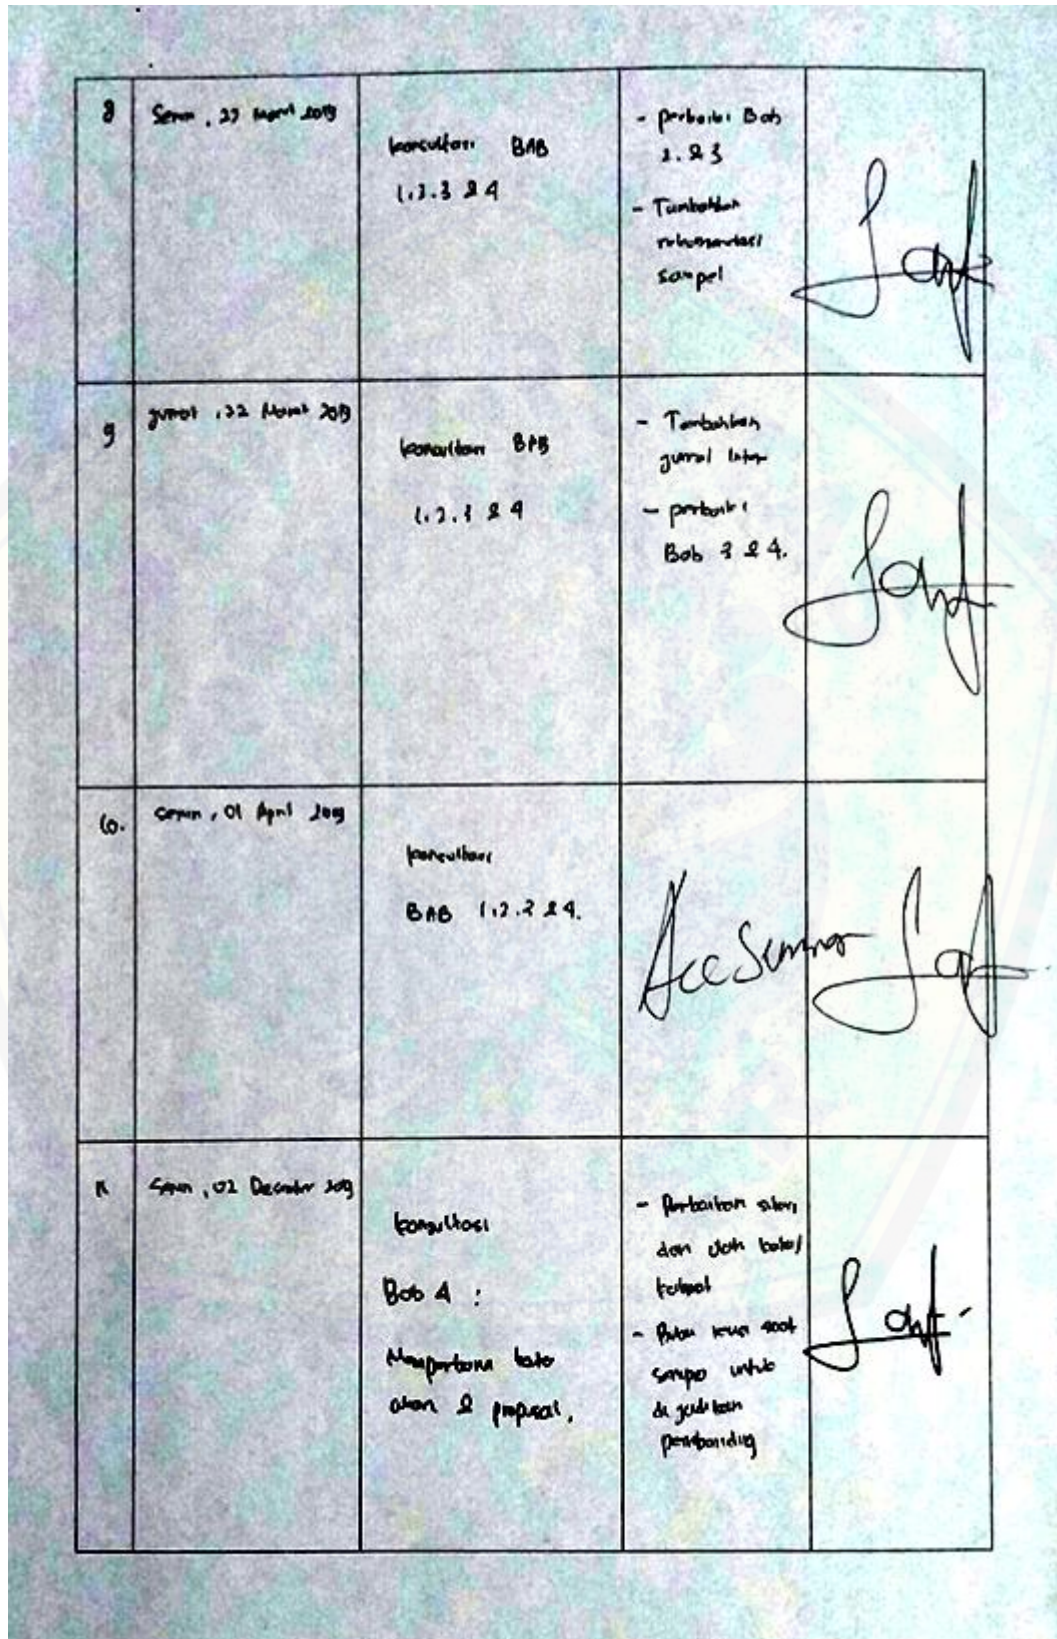 8
Senin, Maret 2019
konsultasi BAB
1.2.3 & 4
- perbaiki Bab
2. & 3
- Tambahkan
sampel
9
Jumat, 22 Maret 2019
konsultasi BAB
1.2.3 & 4
- Tambahkan
jurnal
- perbaiki
Bab 3 & 4.
10.
Senin, 01 April 2019
konsultasi
BAB 1.2.3 & 4.
Acc Seminar
11
Senin, 02 Desember 2019
konsultasi
Bab 4 :
Memperbaiki kata
akan & proposal.
- Perbaikan
dan
kalimat
-
untuk
di jadikan
pembanding